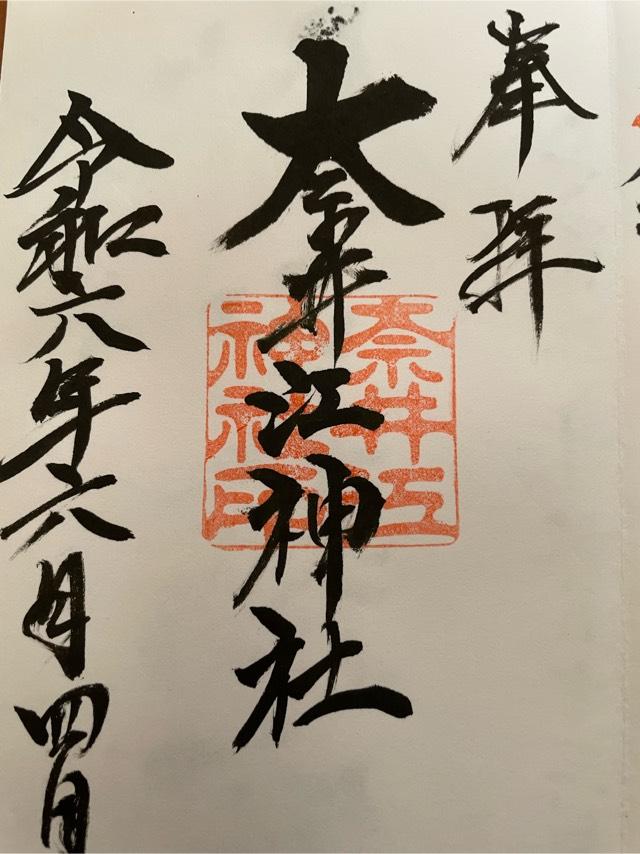 奉拝
奈井江神社
奈井江
神社印
令和六年六月四日